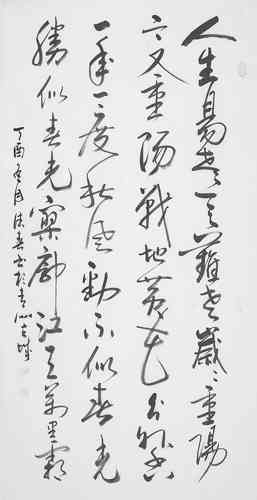 人生易老天難老歲〻重陽
今又重陽戰地黃花分外香
一年一度秋風勁不似春光
勝似春光寥廓江天萬里霜
丁酉冬月書於青州古城